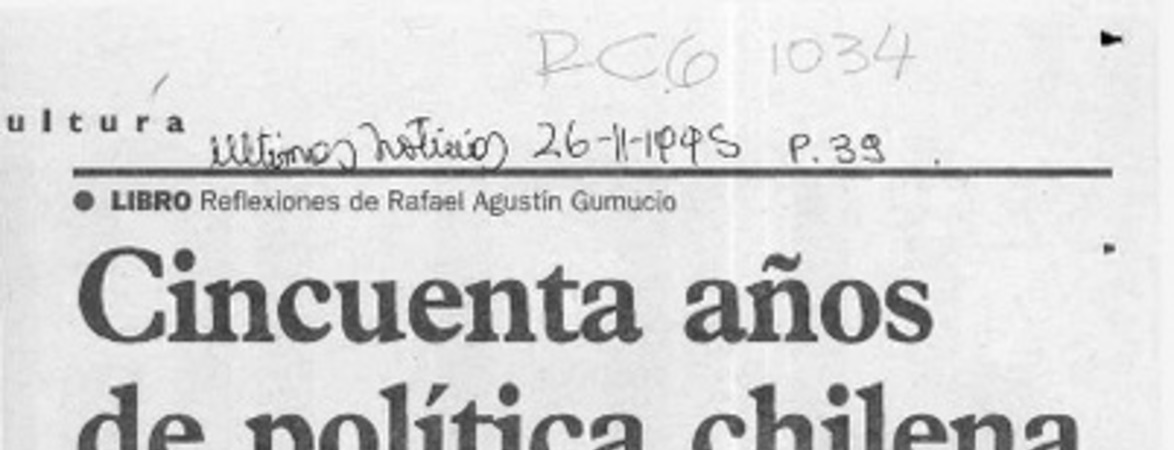 RC6 1034
ultura
Ultimas Noticias 26-11-1995 P. 39
LIBRO Reflexiones de Rafael Agustín Gumucio
Cincuenta años
de política chilena